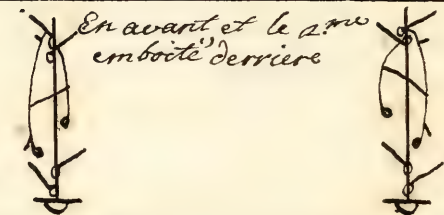 En avant et le 2.me
emboité derriere